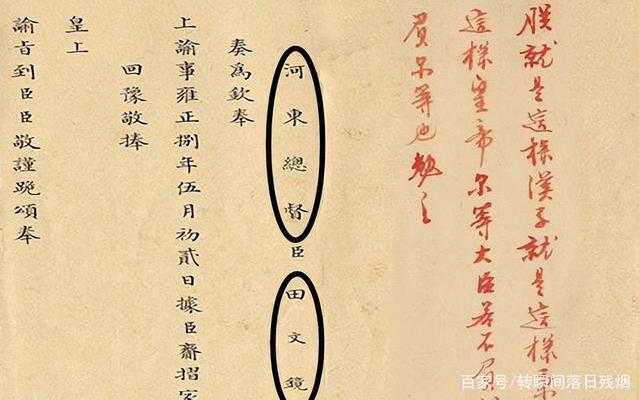 朕就是這樣漢子就是這樣秉
這樣皇帝尔等大臣若不負
負尔等也勉之
河東總督臣田文鏡
奏為欽奉
上諭事雍正捌年伍月初貳日據臣齎摺家
回豫敬捧
皇上
諭旨到臣臣敬謹跪頌奉
百家号/转瞬间落日残烟